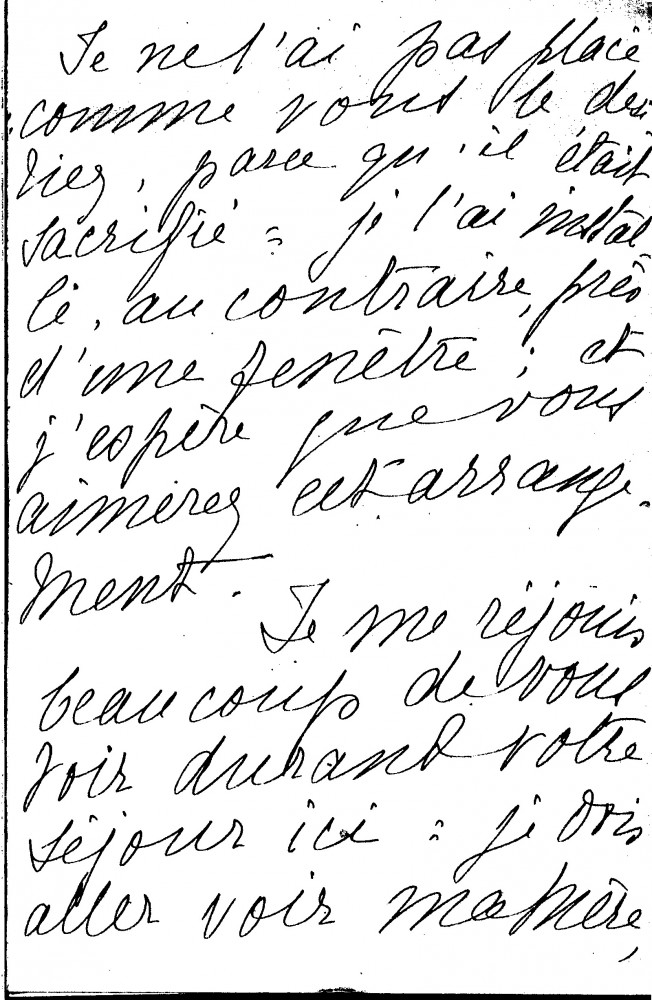 Je ne l'ai pas placé
comme vous le dési
riez, parce qu'il était
sacrifié = je l'ai instal
lé, au contraire, près
d'une fenêtre ; et
j'espère que vous
aimerez cet arrange-
ment.
Je me réjouis
beaucoup de vous
voir durant votre
séjour ici = je dois
aller voir ma Mère,